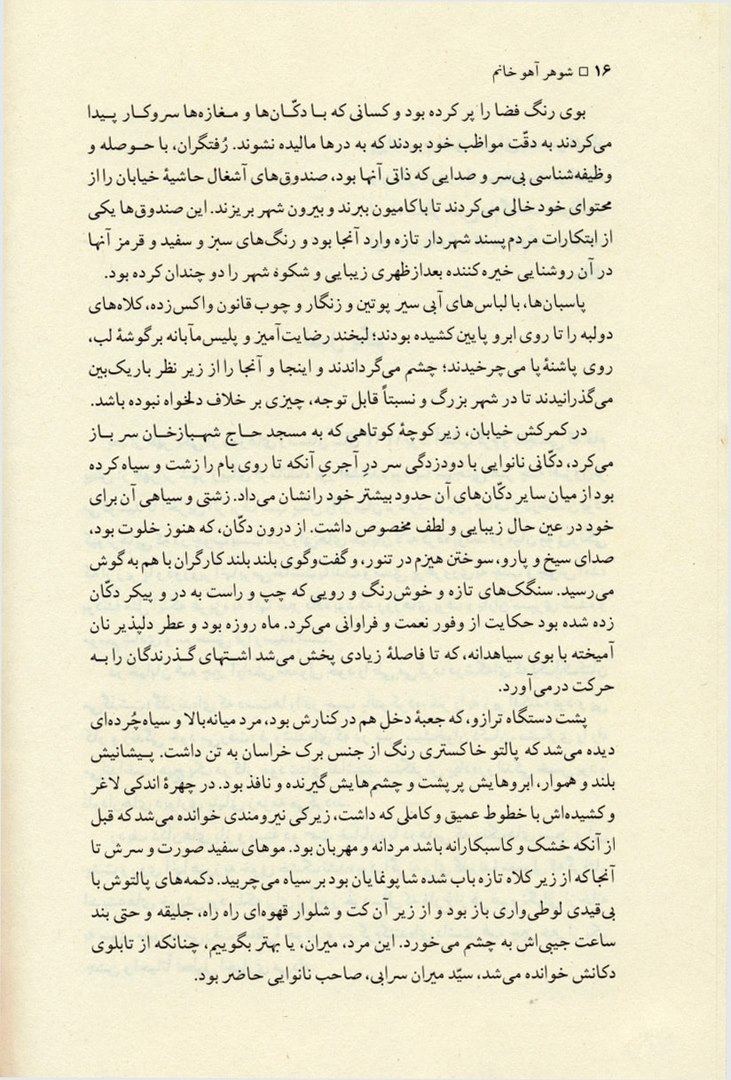 ۱۶ □ شوهر آهو خانم
بوی رنگ فضا را پر کرده بود و کسانی که بـا دکّـان‌ها و مـغازه‌ها سروکـار پـیدا
می‌کردند به دقّت مواظب خود بودند که به درها مالیده نشوند. رُفتگران، با حـوصله و
وظیفه‌شناسی بی‌سر و صدایی که ذاتی آنها بود، صندوق‌های آشغال حاشیهٔ خیابان را از
محتوای خود خالی می‌کردند تا با کامیون ببرند و بیرون شهر بریزند. این صندوق‌ها یکی
از ابتکارات مردم‌پسند شهردار تازه وارد آنجا بود و رنگ‌های سبز و سفید و قرمز آنها
در آن روشنایی خیره‌کننده بعدازظهری زیبایی و شکوه شهر را دو چندان کرده بود.
پاسبان‌ها، با لباس‌های آبی سیر پوتین و زنگار و چوب قانون واکس‌زده، کلاه‌های
دولبه را تا روی ابرو پایین کشیده بودند؛ لبخند رضایت‌آمیز و پلیس‌مآبانه برگوشهٔ لب،
روی پاشنهٔ پا می‌چرخیدند؛ چشم می‌گرداندند و اینجا و آنجا را از زیر نظر باریک‌بین
می‌گذرانیدند تا در شهر بزرگ و نسبتاً قابل توجه، چیزی بر خلاف دلخواه نبوده باشد.
در کمرکش خیابان، زیر کوچهٔ کوتاهی که به مسجد حـاج شهـبازخـان سر بـاز
می‌کرد، دکّانی نانوایی با دودزدگی سر درِ آجریِ آنکه تا روی بام را زشت و سیاه کرده
بود از میان سایر دکّان‌های آن حدود بیشتر خود را نشان می‌داد. زشتی و سیاهی آن برای
خود در عین حال زیبایی و لطف مخصوص داشت. از درون دکّان، که هنوز خلوت بود،
صدای سیخ و پارو، سوختن هیزم در تنور، و گفت‌وگوی بلند بلند کارگران با هم به گوش
می‌رسید. سنگک‌های تازه و خوش‌رنگ و رویی که چپ و راست به در و پیکر دکّان
زده شده بود حکایت از وفور نعمت و فراوانی می‌کرد. ماه روزه بود و عطر دلپذیر نان
آمیخته با بوی سیاهدانه، که تا فاصلهٔ زیادی پخش می‌شد اشـتهای گـذرندگان را بـه
حرکت درمی‌آورد.
پشت دستگاه ترازو، که جعبهٔ دخل هم در کنارش بود، مرد میانه‌بالا و سیاه‌چُرده‌ای
دیده می‌شد که پالتو خاکستری رنگ از جنس برک خراسان به تن داشت. پـیشانیش
بلند و هموار، ابروهایش پرپشت و چشم‌هایش گیرنده و نافذ بود. در چهرهٔ اندکی لاغر
و کشیده‌اش با خطوط عمیق و کاملی که داشت، زیرکی نیرومندی خوانده می‌شد که قبل
از آنکه خشک و کاسبکارانه باشد مردانه و مهربان بود. موهای سفید صورت و سرش تا
آنجا که از زیر کلاه تازه باب شده شاپو نمایان بود بر سیاه می‌چربید. دکمه‌های پالتوش با
بی‌قیدی لوطی‌واری باز بود و از زیر آن کت و شلوار قهوه‌ای راه راه، جلیقه و حتی بند
ساعت جیبی‌اش به چشم می‌خورد. این مرد، میران، یا بهتر بگوییم، چنانکه از تابلوی
دکانش خوانده می‌شد، سیّد میران سرابی، صاحب نانوایی حاضر بود.